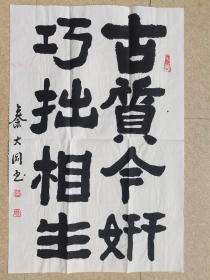 古質今妍
巧拙相生
秦大书